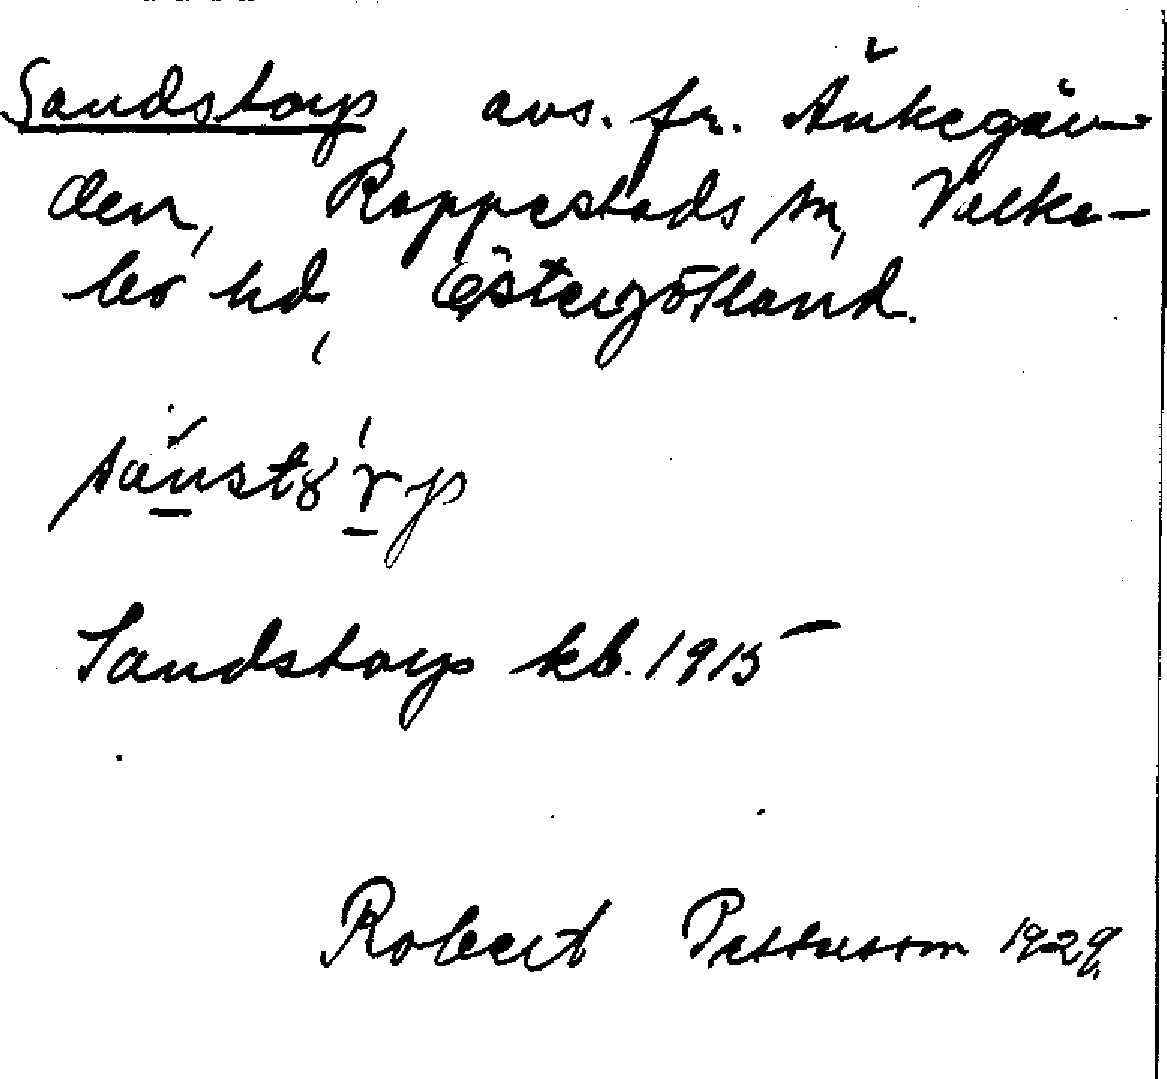 Sandstorp, avs. fr. Änkegår-
den, Rappestads sn, Valke-
bo hd, Östergötland.
Sandstorp kb. 1915
Robert Pettersson 1929